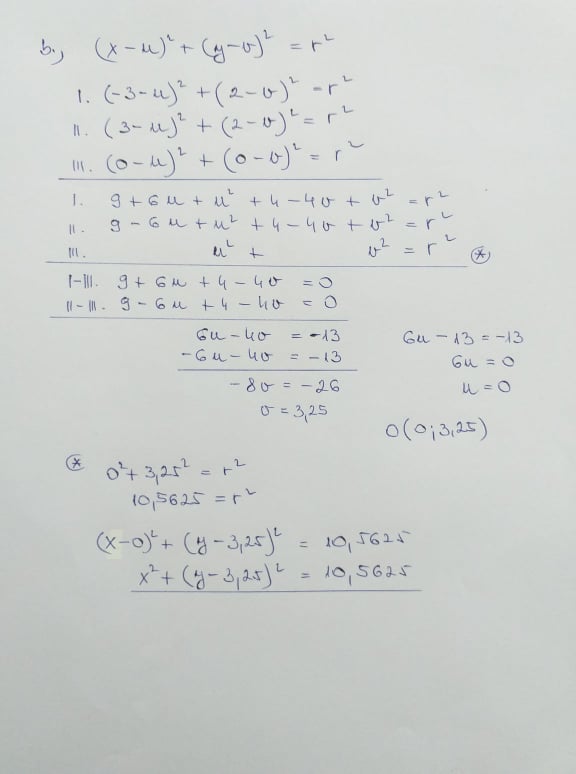 b., (x-u)² + (y-v)² = r²
I. (-3-u)² + (2-v)² = r²
II. (3-u)² + (2-v)² = r²
III. (0-u)² + (0-v)² = r²
I. 9 + 6u + u² + 4 - 4v + v² = r²
II. 9 - 6u + u² + 4 - 4v + v² = r²
III. u² + v² = r² *
I-III. 9 + 6u + 4 - 4v = 0
II-III. 9 - 6u + 4 - 4v = 0
6u - 4v = -13
-6u - 4v = -13
-8v = -26
v = 3,25
6u - 13 = -13
6u = 0
u = 0
O(0;3,25)
* 0² + 3,25² = r²
10,5625 = r²
(x-0)² + (y-3,25)² = 10,5625
x² + (y-3,25)² = 10,5625